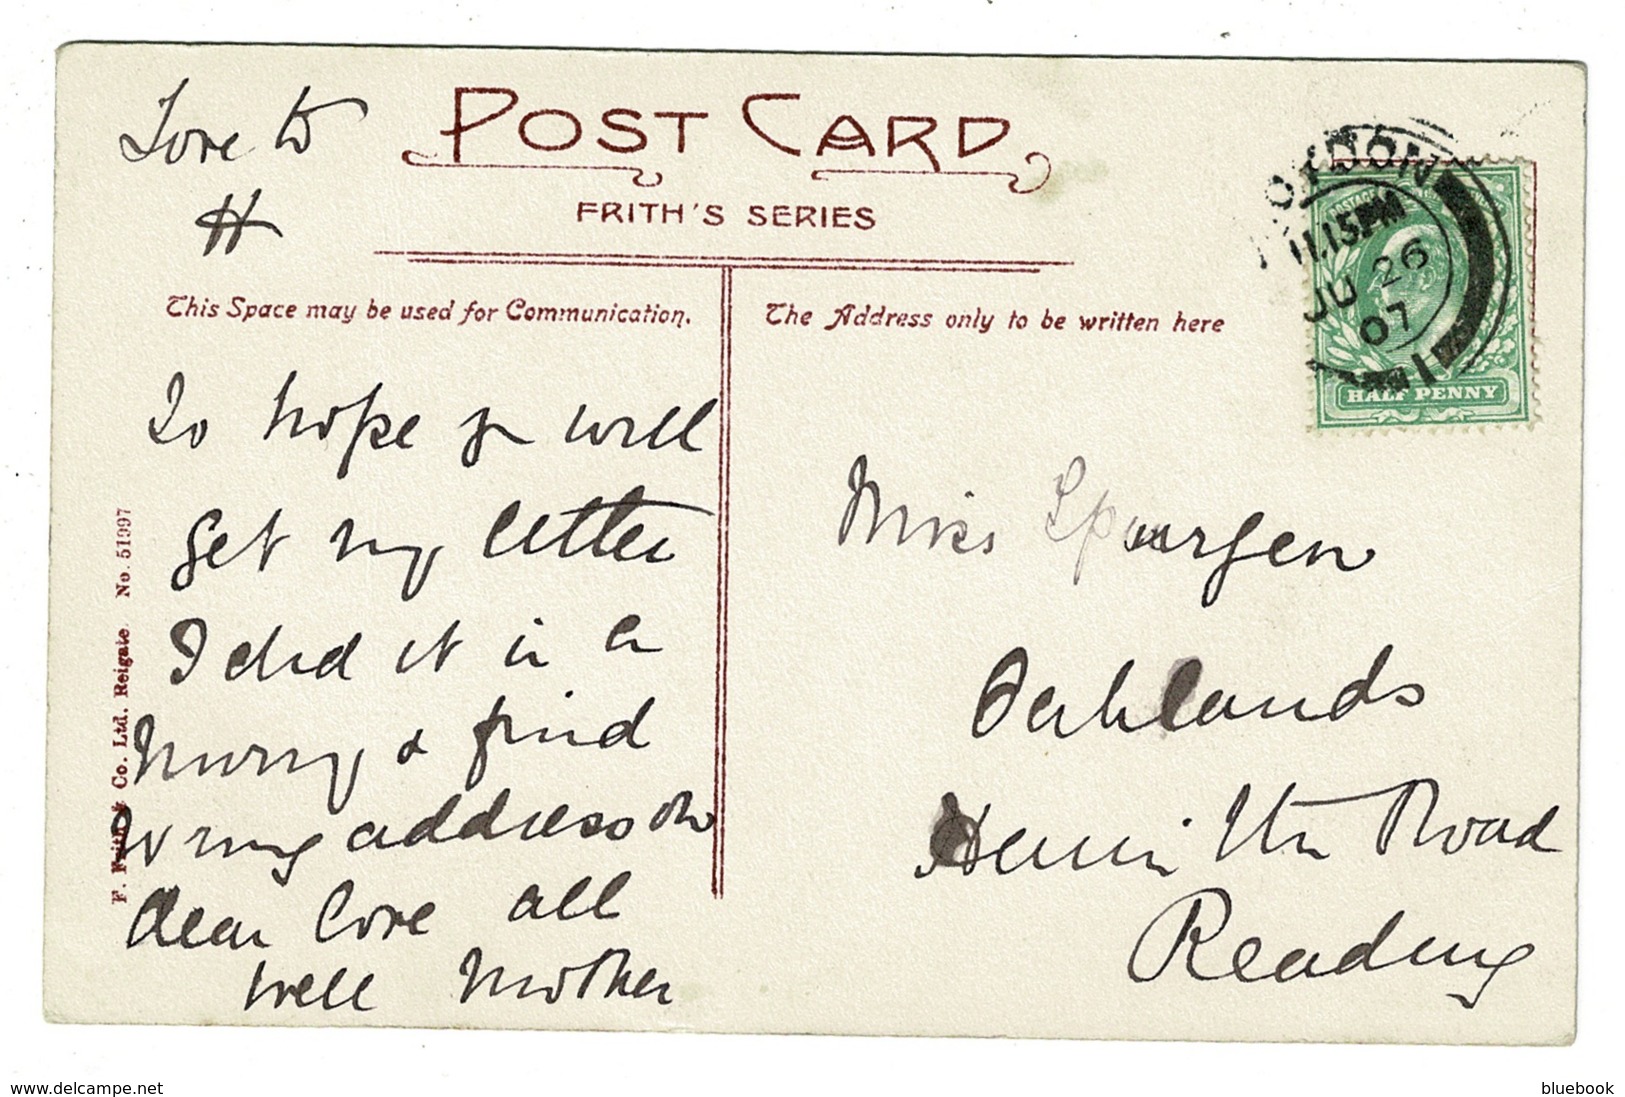 Love to
H
POST CARD
FRITH'S SERIES
This Space may be used for Communication.
The Address only to be written here
CROYDON
11.15PM
JU 26
07
1
POSTAGE
HALF PENNY
So hope you will
get my letter
I did it in a
hurry & find
wrong address on
dear love all
well Mother
Miss Spurgen
Oaklands
Hamilton Road
Reading
F. Frith & Co. Ltd. Reigate. No. 51997
delcampe.net
bluebook